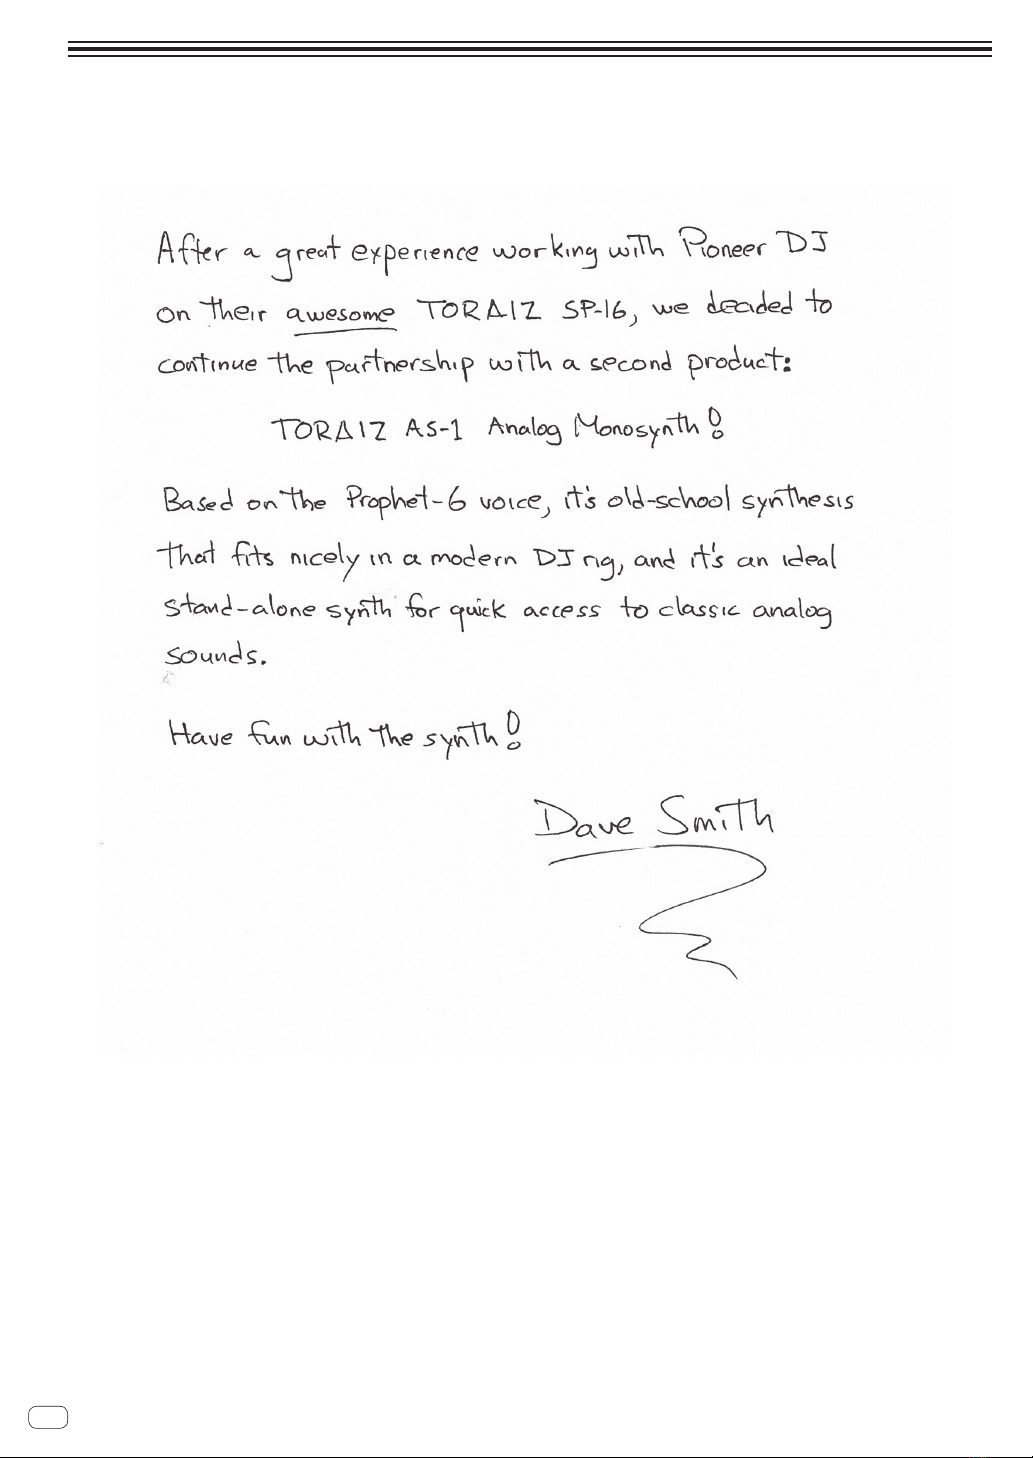 After a great experience working with Pioneer DJ
on their awesome TORAIZ SP-16, we decided to
continue the partnership with a second product:
TORAIZ AS-1 Analog Monosynth!
Based on the Prophet-6 voice, it's old-school synthesis
that fits nicely in a modern DJ rig, and it's an ideal
stand-alone synth for quick access to classic analog
sounds.
Have fun with the synth!
Dave Smith